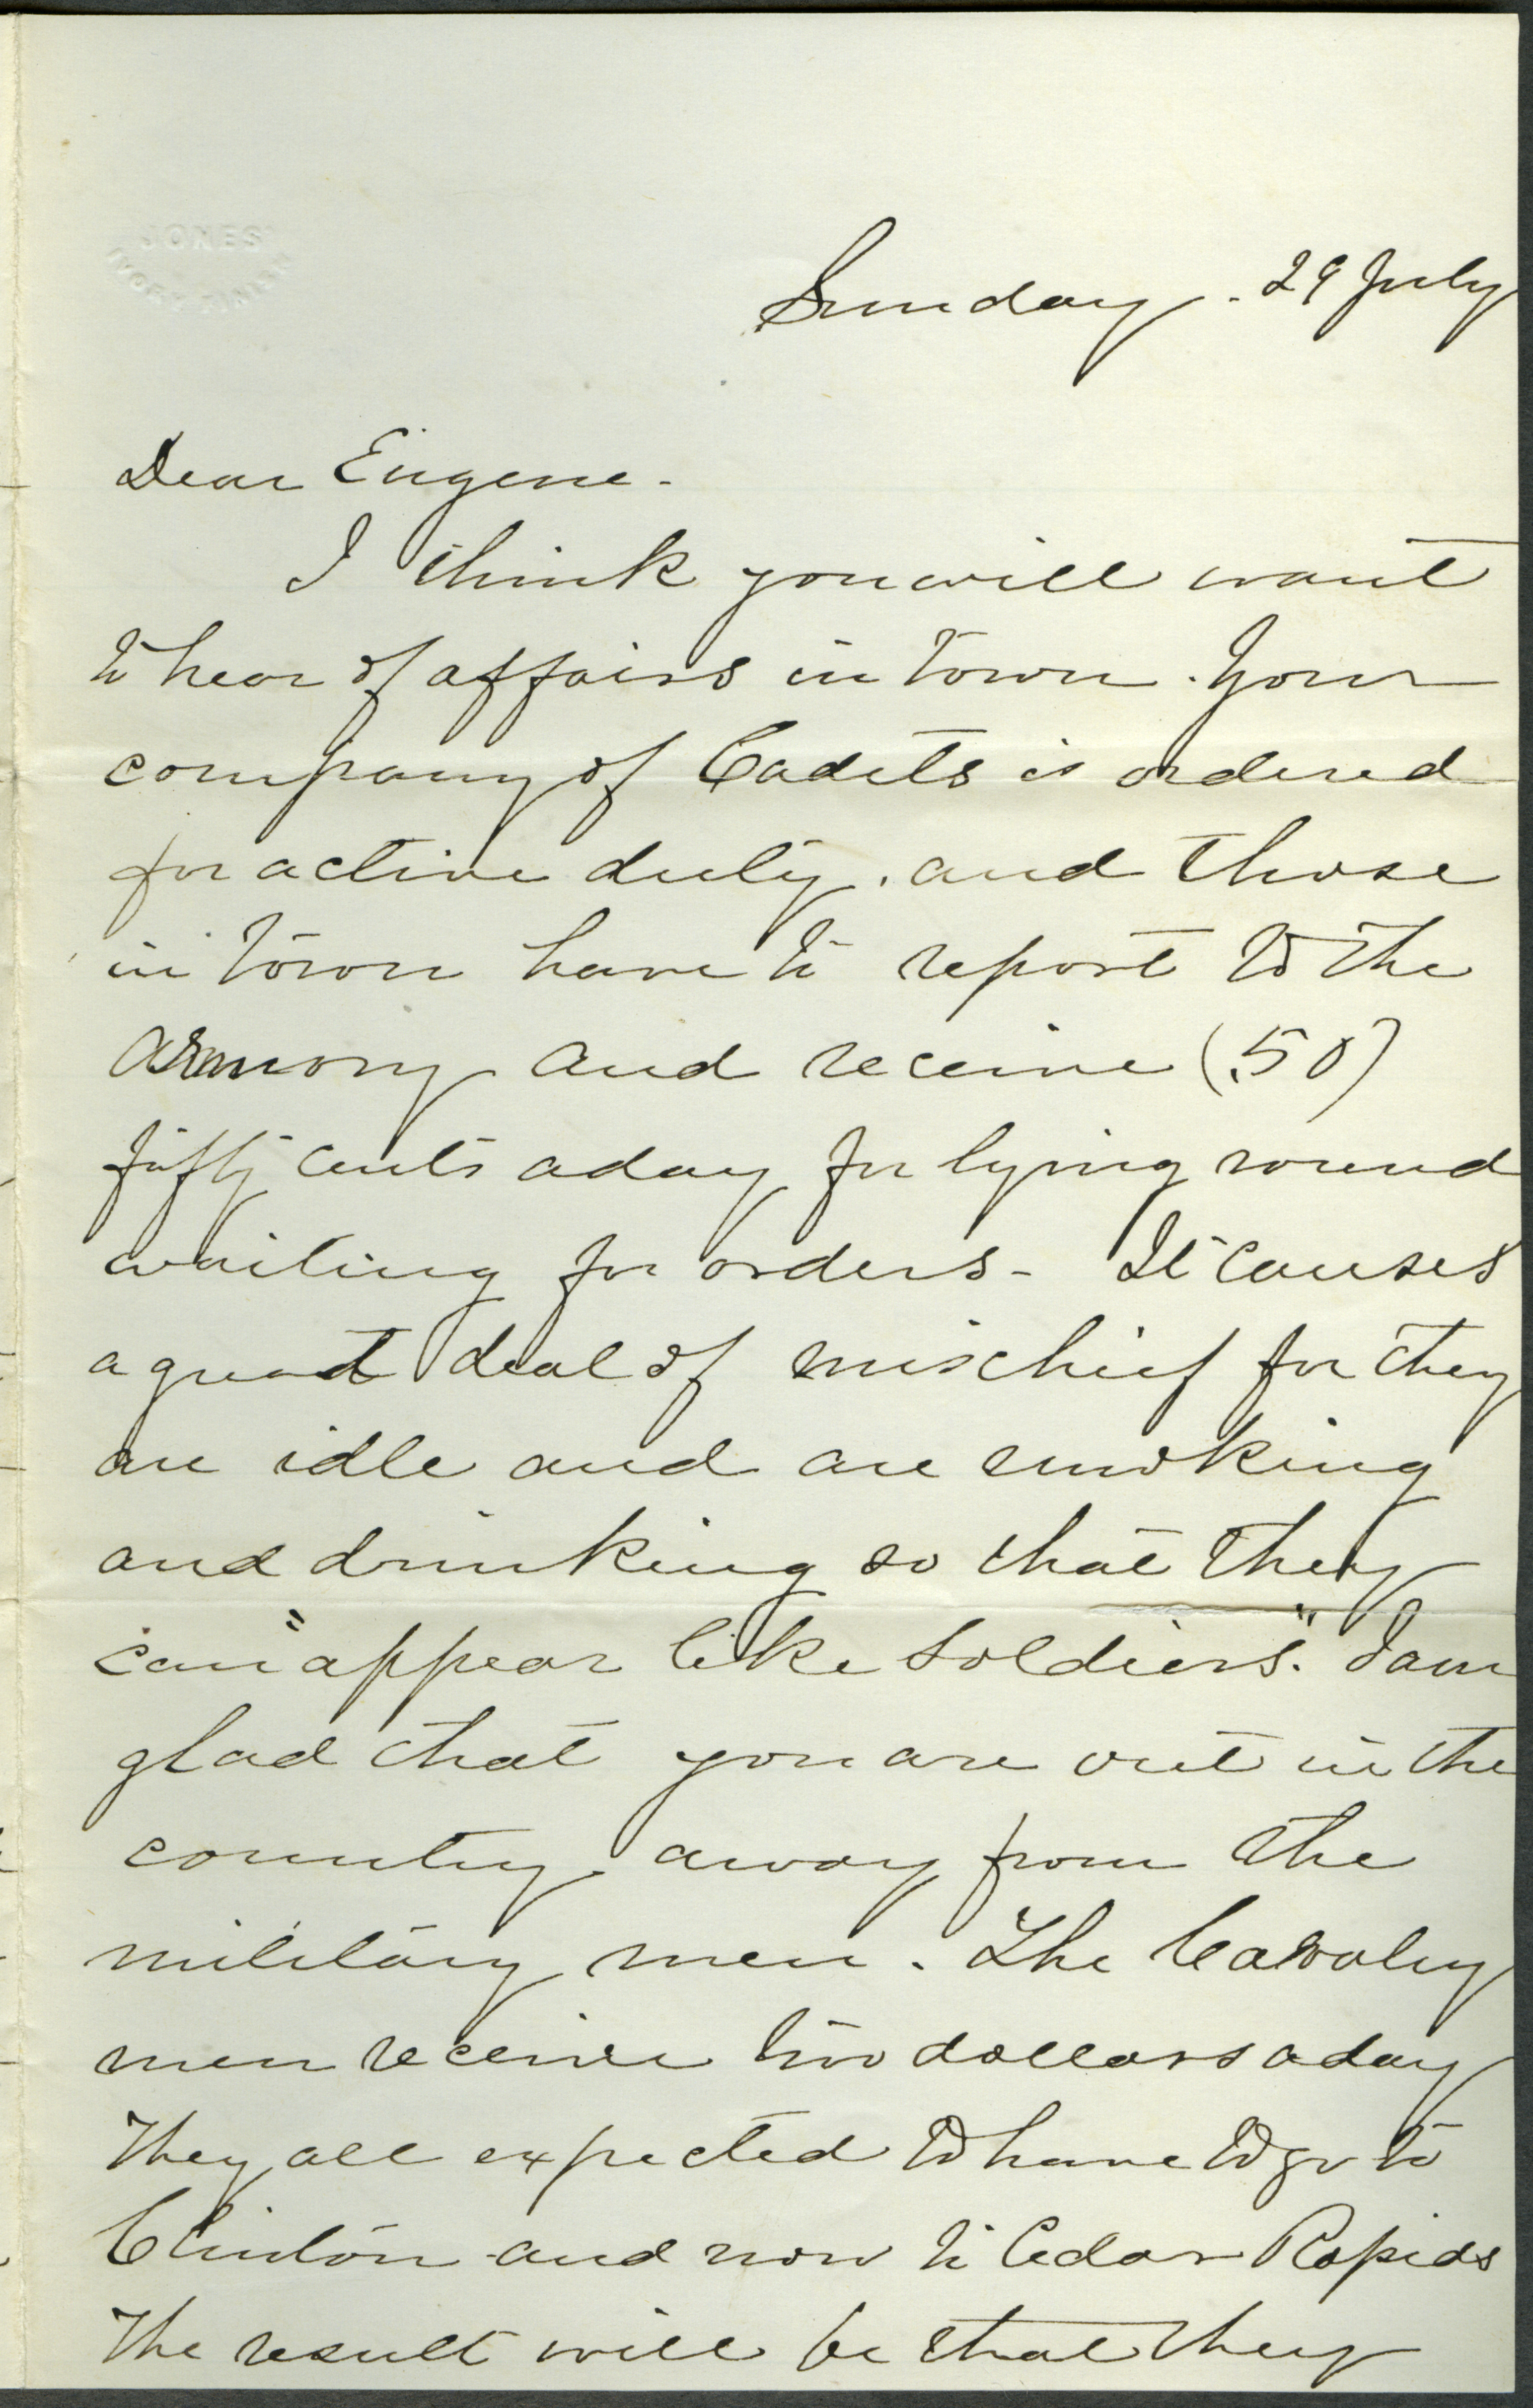 JONES'
IVORY FINISH
Sunday. 29 July
Dear Eugene.
I think you will want
to hear of affairs in town. Your
company of Cadets is ordered
for active duty. and those
in town have to report to the
armory and receive (.50)
fifty cents a day for lying round
waiting for orders - It causes
a great deal of mischief for they
are idle and are smoking
and drinking so that they
can "appear like soldiers". I am
glad that you are out in the
country. away from the
military men. The Cavalry
men receive two dollars a day
They all expected to have to go to
Clinton and now to Cedar Rapids
The result will be that they